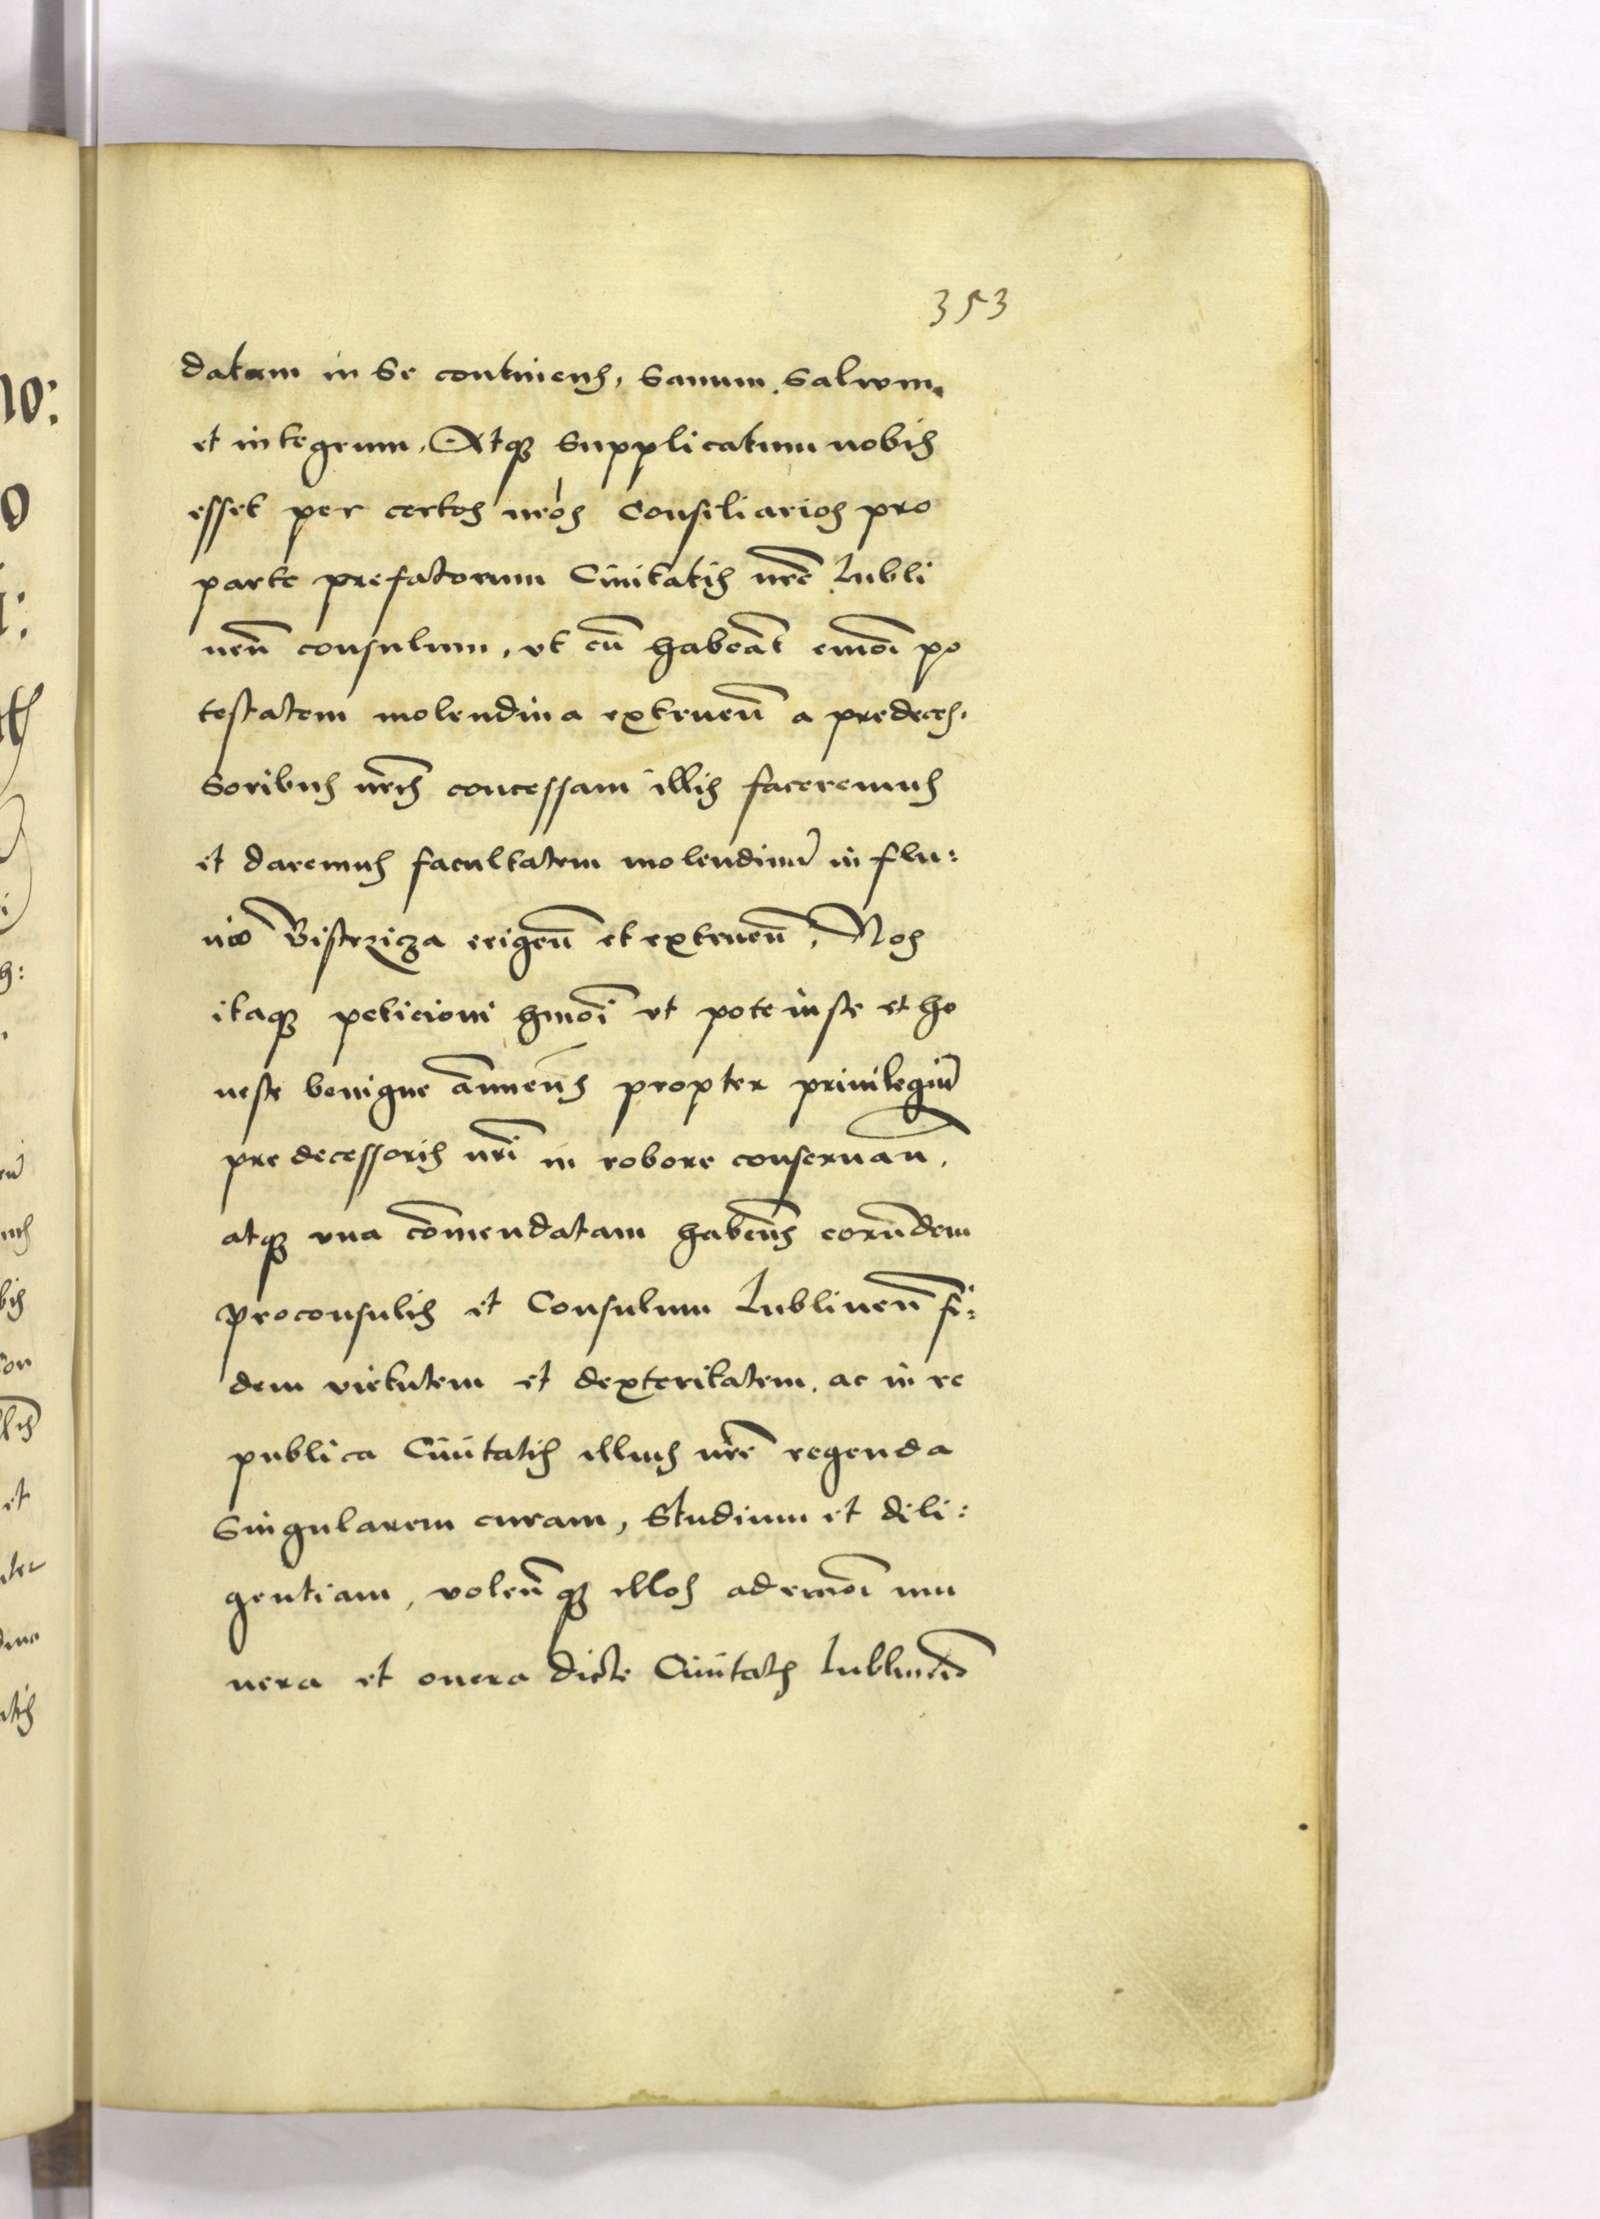 353
datam in se continens, sanum, salvum,
et integrum, Atq3 supplicatum nobis
esset per certos nros Consiliarios pro
parte prefatorum Civitatis nrē Lubli
neñ consulum, vt cū habeāt emōi po
testatem molendina extrueñ a predeces,
soribus nrīs concessam illis faceremus
et daremus facultatem molendinū in flu:
vio Bistrzicza erigeñ et extrueñ, Nos
itaq3 peticioni hmōi vt pote iuste et ho
neste benigne annueñs propter privilegiū
predecessoris nrī in robore conservañ,
atq3 vna cōmendatam habeñs eorūdem
proconsulis et Consulum Lublineñ fi:
dem virtutem et dexteritatem, ac in re
publica Civitatis illius nrē regenda
singularem curam, studium et dili:
gentiam, voleñ q3 illos ad emōi mu
nera et onera dicte Civitatis Lublineñ